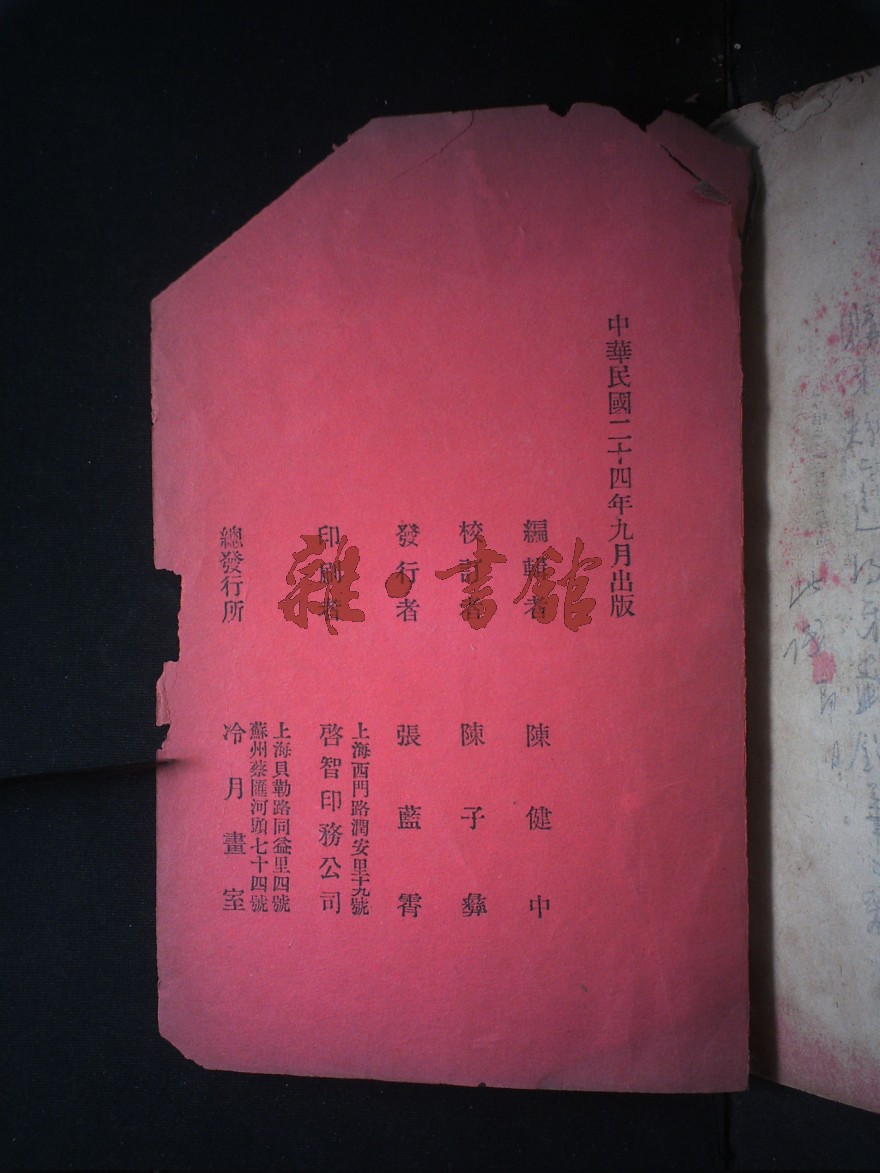 中華民國二十四年九月出版
編輯者 陳健中
校訂者 陳子彝
發行者 張藍霄
上海西門路潤安里十九號
印刷者 啓智印務公司
上海貝勒路同益里四號
蘇州蔡匯河頭七十四號
總發行所 冷月畫室
雜·書館